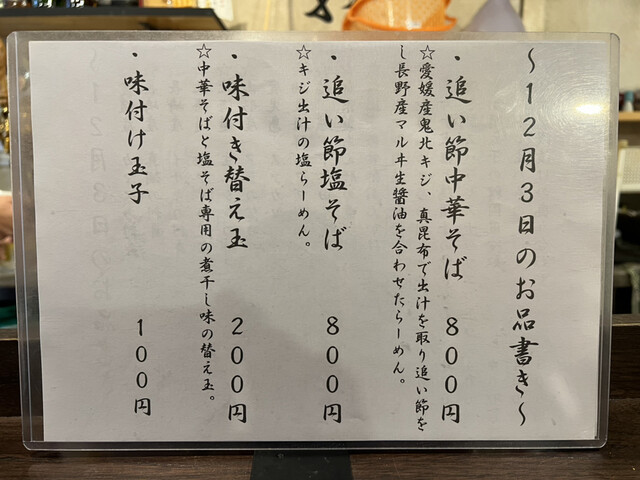 ～12月3日のお品書き～
・追い節中華そば 800円
☆愛媛産鬼北キジ、真昆布で出汁を取り追い節を
し長野産マルヰ生醤油を合わせたらーめん。
・追い節塩そば 800円
☆キジ出汁の塩らーめん。
・味付き替え玉 200円
☆中華そばと塩そば専用の煮干し味の替え玉。
・味付け玉子 100円